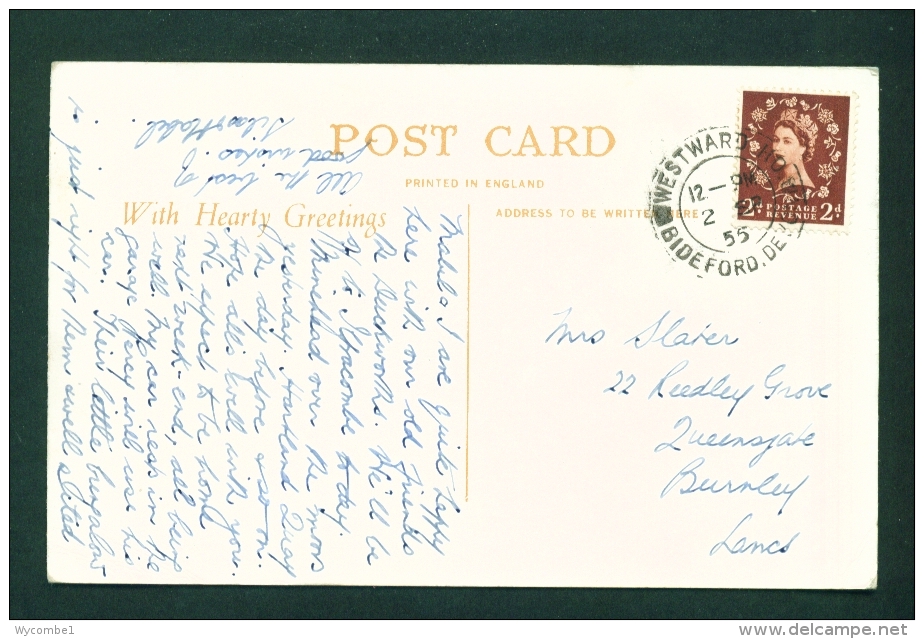 POST CARD
PRINTED IN ENGLAND
With Hearty Greetings
ADDRESS TO BE WRITTEN HERE
WESTWARD HO
12 - PM
2
55
BIDEFORD, DE
2d POSTAGE REVENUE 2d
Mabel & I are quite happy
here with our old friends
the Duckworths. We'll be
at Ilfracombe today.
Minehead over the moors
yesterday. Hartland Quay
the day before & so on.
Hope all's well with you.
We expect to be home
next week-end, all being
well. My car rests in the
garage. Percy will use his
car. Their little bungalow
is just right for them & well sited
All the best of
good wishes.
Mabel.
Mrs Slater
22 Reedley Grove
Queensgate
Burnley
Lancs
Wycombe1
www.delcampe.net